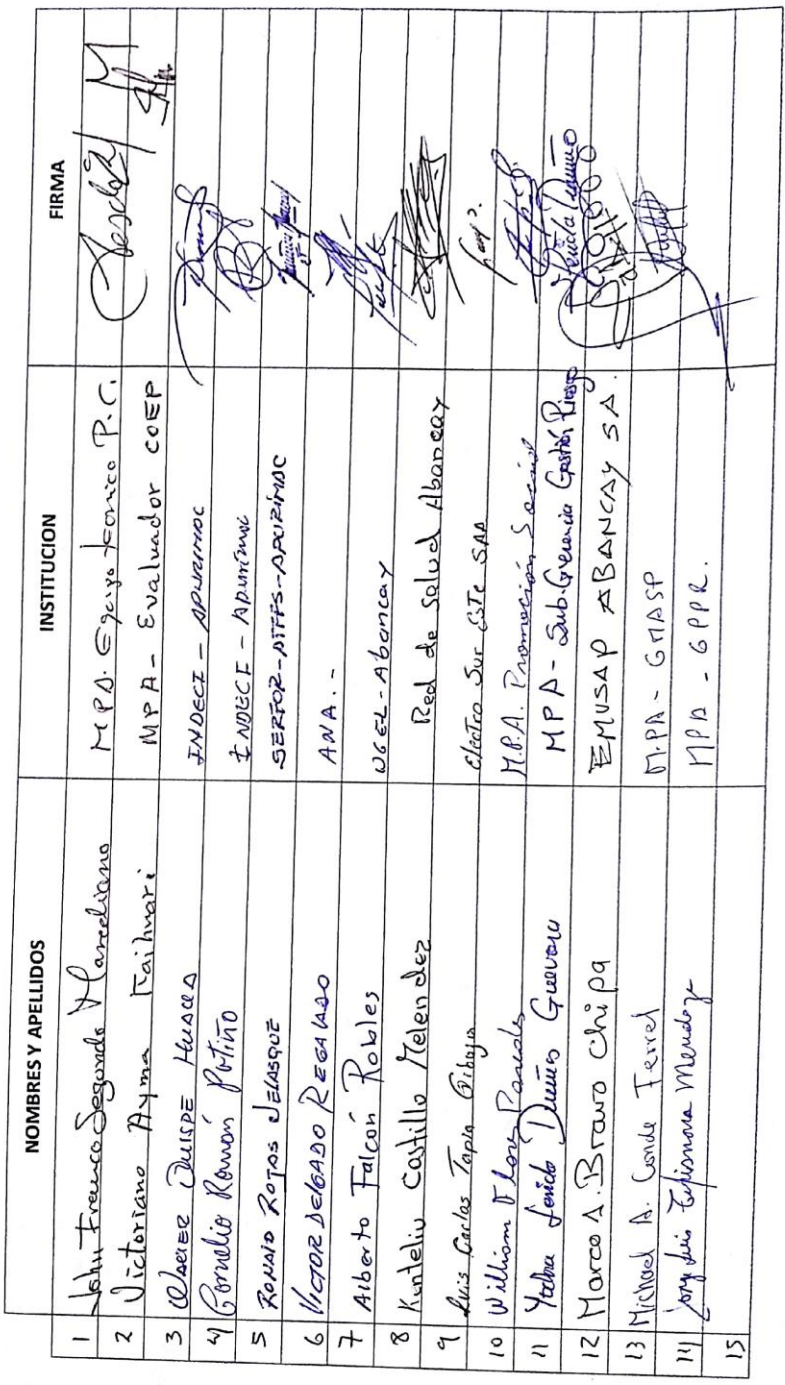 NOMBRES Y APELLIDOS INSTITUCION FIRMA
1 John Franco Segundo Marceliano MPA. Equipo tecnico P.C.
2 Victoriano Ayma MPA - Evaluador COEP
3 QUISPE INDECI - APURIMAC
4 Cornelio Román INDECI - Apurimac
5 RONALD ROJAS VELASQUE SERFOR-ATFFS-APURIMAC
6 VICTOR DELGADO REGALADO ANA.-
7 Alberto Falcón Robles UGEL-Abancay
8 Castillo Melendez Red de Salud Abancay
9 Luis Carlos Tapia Electro Sur Este SAA
10 William Flores M.P.A. Promoción Social
11 Guevara MPA - Sub.Gerencia Gestión Riesgo
12 Marco A. Bravo Chipa EMUSAP ABANCAY SA.
13 Michael A. Conde Ferrel M.PA - GMASP
14 Jorge Luis Mendoza MPA - GPPR.
15